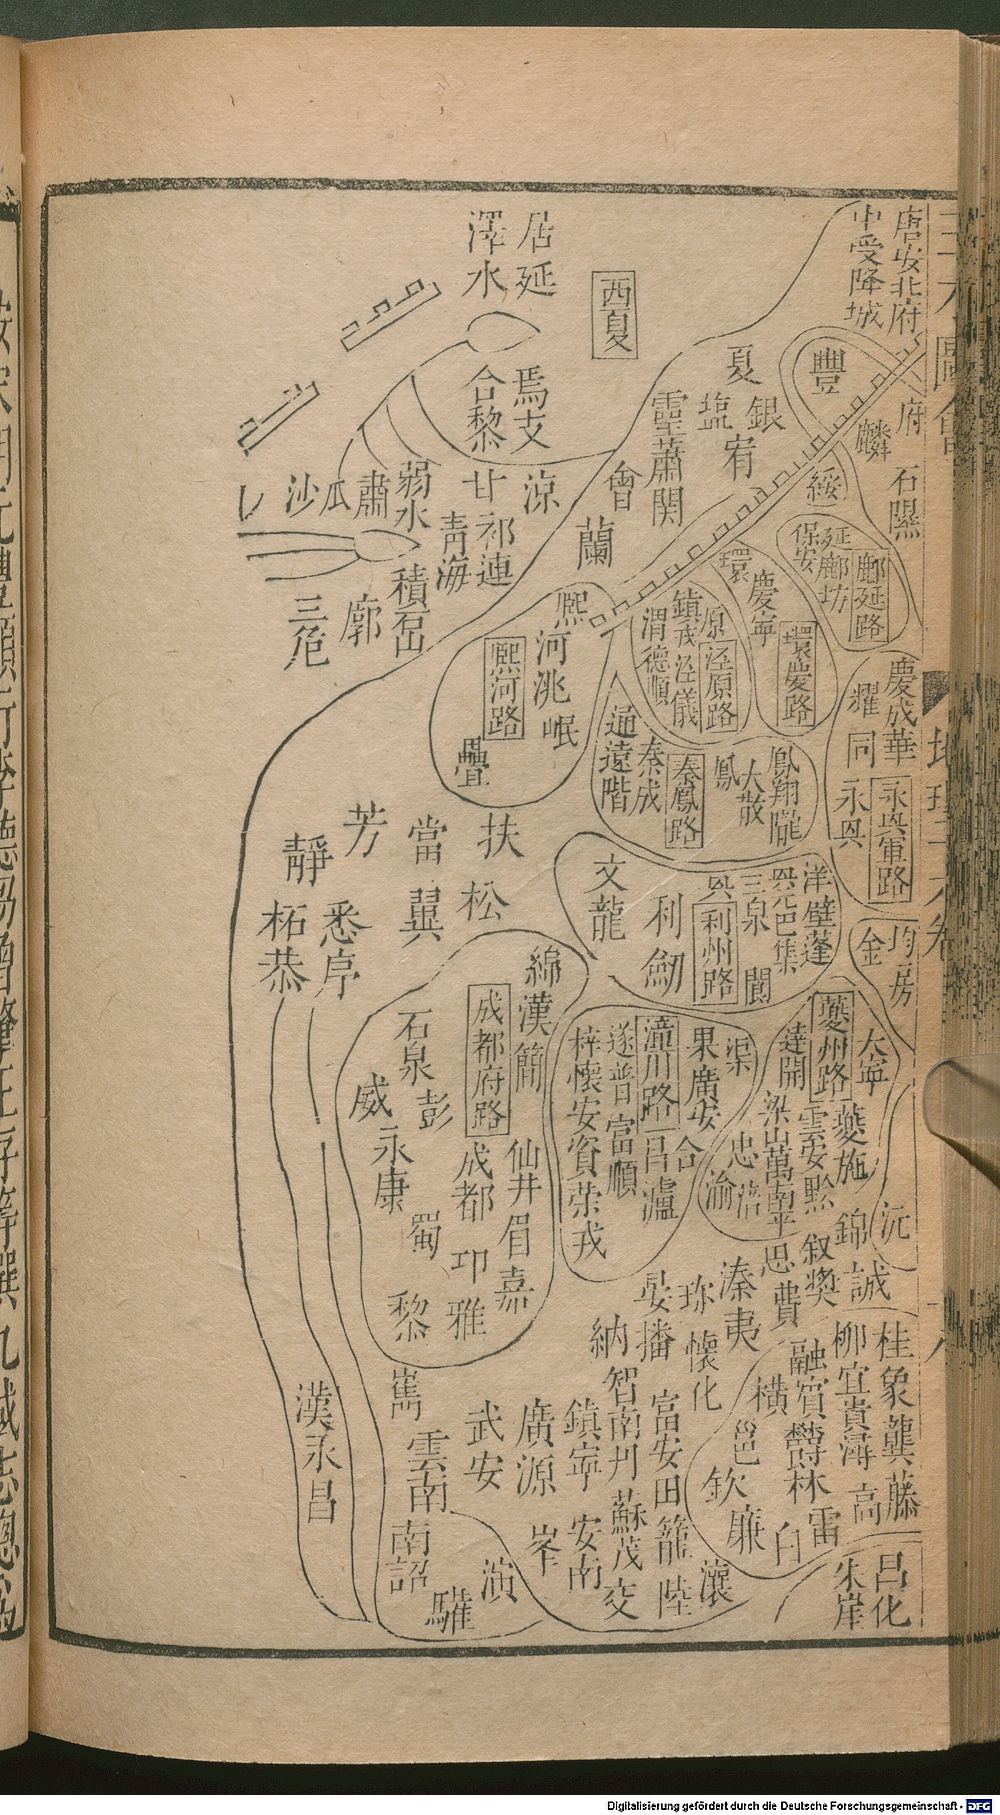 唐安北府
中受降城
豐
府
麟
石隰
綏
夏
銀
塩
宥
靈
蕭関
會
蘭
西夏
居延
澤水
焉支
合黎
涼
甘
弱水
肅
瓜
沙
祁連
青海
積石
廓
三危
延鄜坊
保安
鄜延路
環
慶寧
環慶路
原
鎮戎
涇儀
渭德順
涇原路
熙
河洮岷
熙河路
疊
通遠階
秦成
秦鳳路
鳳
大散
鳳翔隴
慶成華
耀
同
永興軍路
扶
當
芳
靜
松
翼
悉
柘恭
文龍
利劒
利州路
三泉
閬
洋壁蓬
巴集
均房
金
綿漢簡
成都府路
石泉
彭
威
永康
蜀
成都
仙井
眉
嘉
卭
雅
黎
潼川路
遂普
富順
梓懷安資荣戎
果廣安
合
渠
昌瀘
夔州路
大寧
達開
夔施
雲安黔
梁山萬南平
忠
涪
渝
沅
錦
誠
叙奬
思
費
溱
夷
珍
播
懷化
納
智南丹
蘇茂
交
富安田籠
陸
瀼
鎮寧
安南
廣源
峯
武安
演
驩
巂
雲南
南詔
漢永昌
桂象龔藤
柳宜貴潯
高
融賓
欝林
橫
邕
欽
廉
白
雷
昌化
朱崖
Digitalisierung gefördert durch die Deutsche Forschungsgemeinschaft - DFG